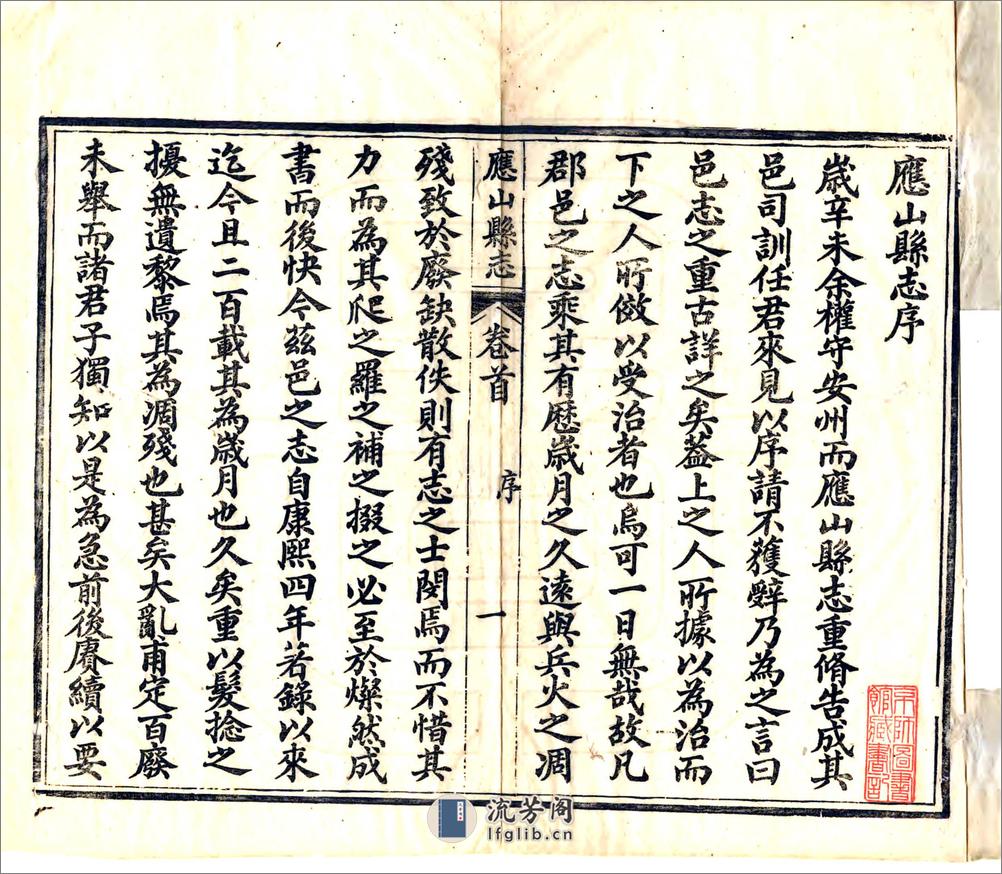 應山縣志序
歲辛未余權守安州而應山縣志重脩告成其
邑司訓任君來見以序請不獲辭乃為之言曰
邑志之重古詳之矣葢上之人所據以為治而
下之人所倣以受治者也烏可一日無哉故凡
郡邑之志乘其有歷歲月之久遠與兵火之凋
應山縣志 卷首 序 一
殘致於廢缺散佚則有志之士閔焉而不惜其
力而為其爬之羅之補之掇之必至於燦然成
書而後快今茲邑之志自康熙四年著錄以來
迄今且二百載其為歲月也久矣重以髮捻之
擾無遺黎焉其為凋殘也甚矣大亂甫定百廢
未舉而諸君子獨知以是為急前後賡續以要
京師圖書
館藏書記
流芳阁
lfglib.cn